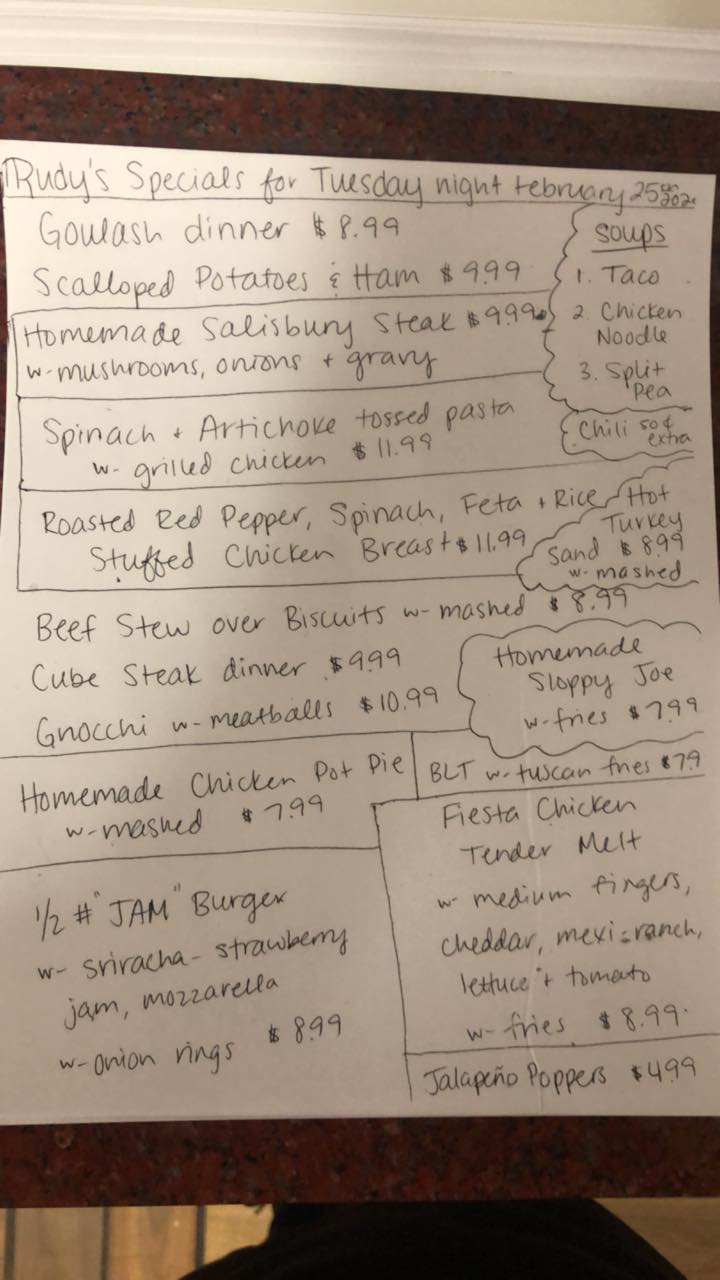 Rudy's Specials for Tuesday night February 25
Goulash dinner $8.99
Scalloped Potatoes & Ham $9.99
Homemade Salisbury Steak $9.99
w-mushrooms, onions + gravy
Spinach + Artichoke tossed pasta
w- grilled chicken $11.99
Roasted Red Pepper, Spinach, Feta + Rice
Stuffed Chicken Breast $11.99
soups
1. Taco
2. Chicken
Noodle
3. Split
Pea
Chili 50¢
extra
Hot
Turkey
Sand $8.99
w-mashed
Beef Stew over Biscuits w- mashed $8.99
Cube Steak dinner $9.99
Gnocchi w-meatballs $10.99
Homemade
Sloppy Joe
w-fries $7.99
Homemade Chicken Pot Pie
w-mashed $7.99
BLT w-tuscan fries $7.9
1/2 # "JAM" Burger
w- sriracha- strawberry
jam, mozzarella
w-onion rings $8.99
Fiesta Chicken
Tender Melt
w- medium fingers,
cheddar, mexi-ranch,
lettuce + tomato
w- fries $8.99
Jalapeño Poppers $4.99